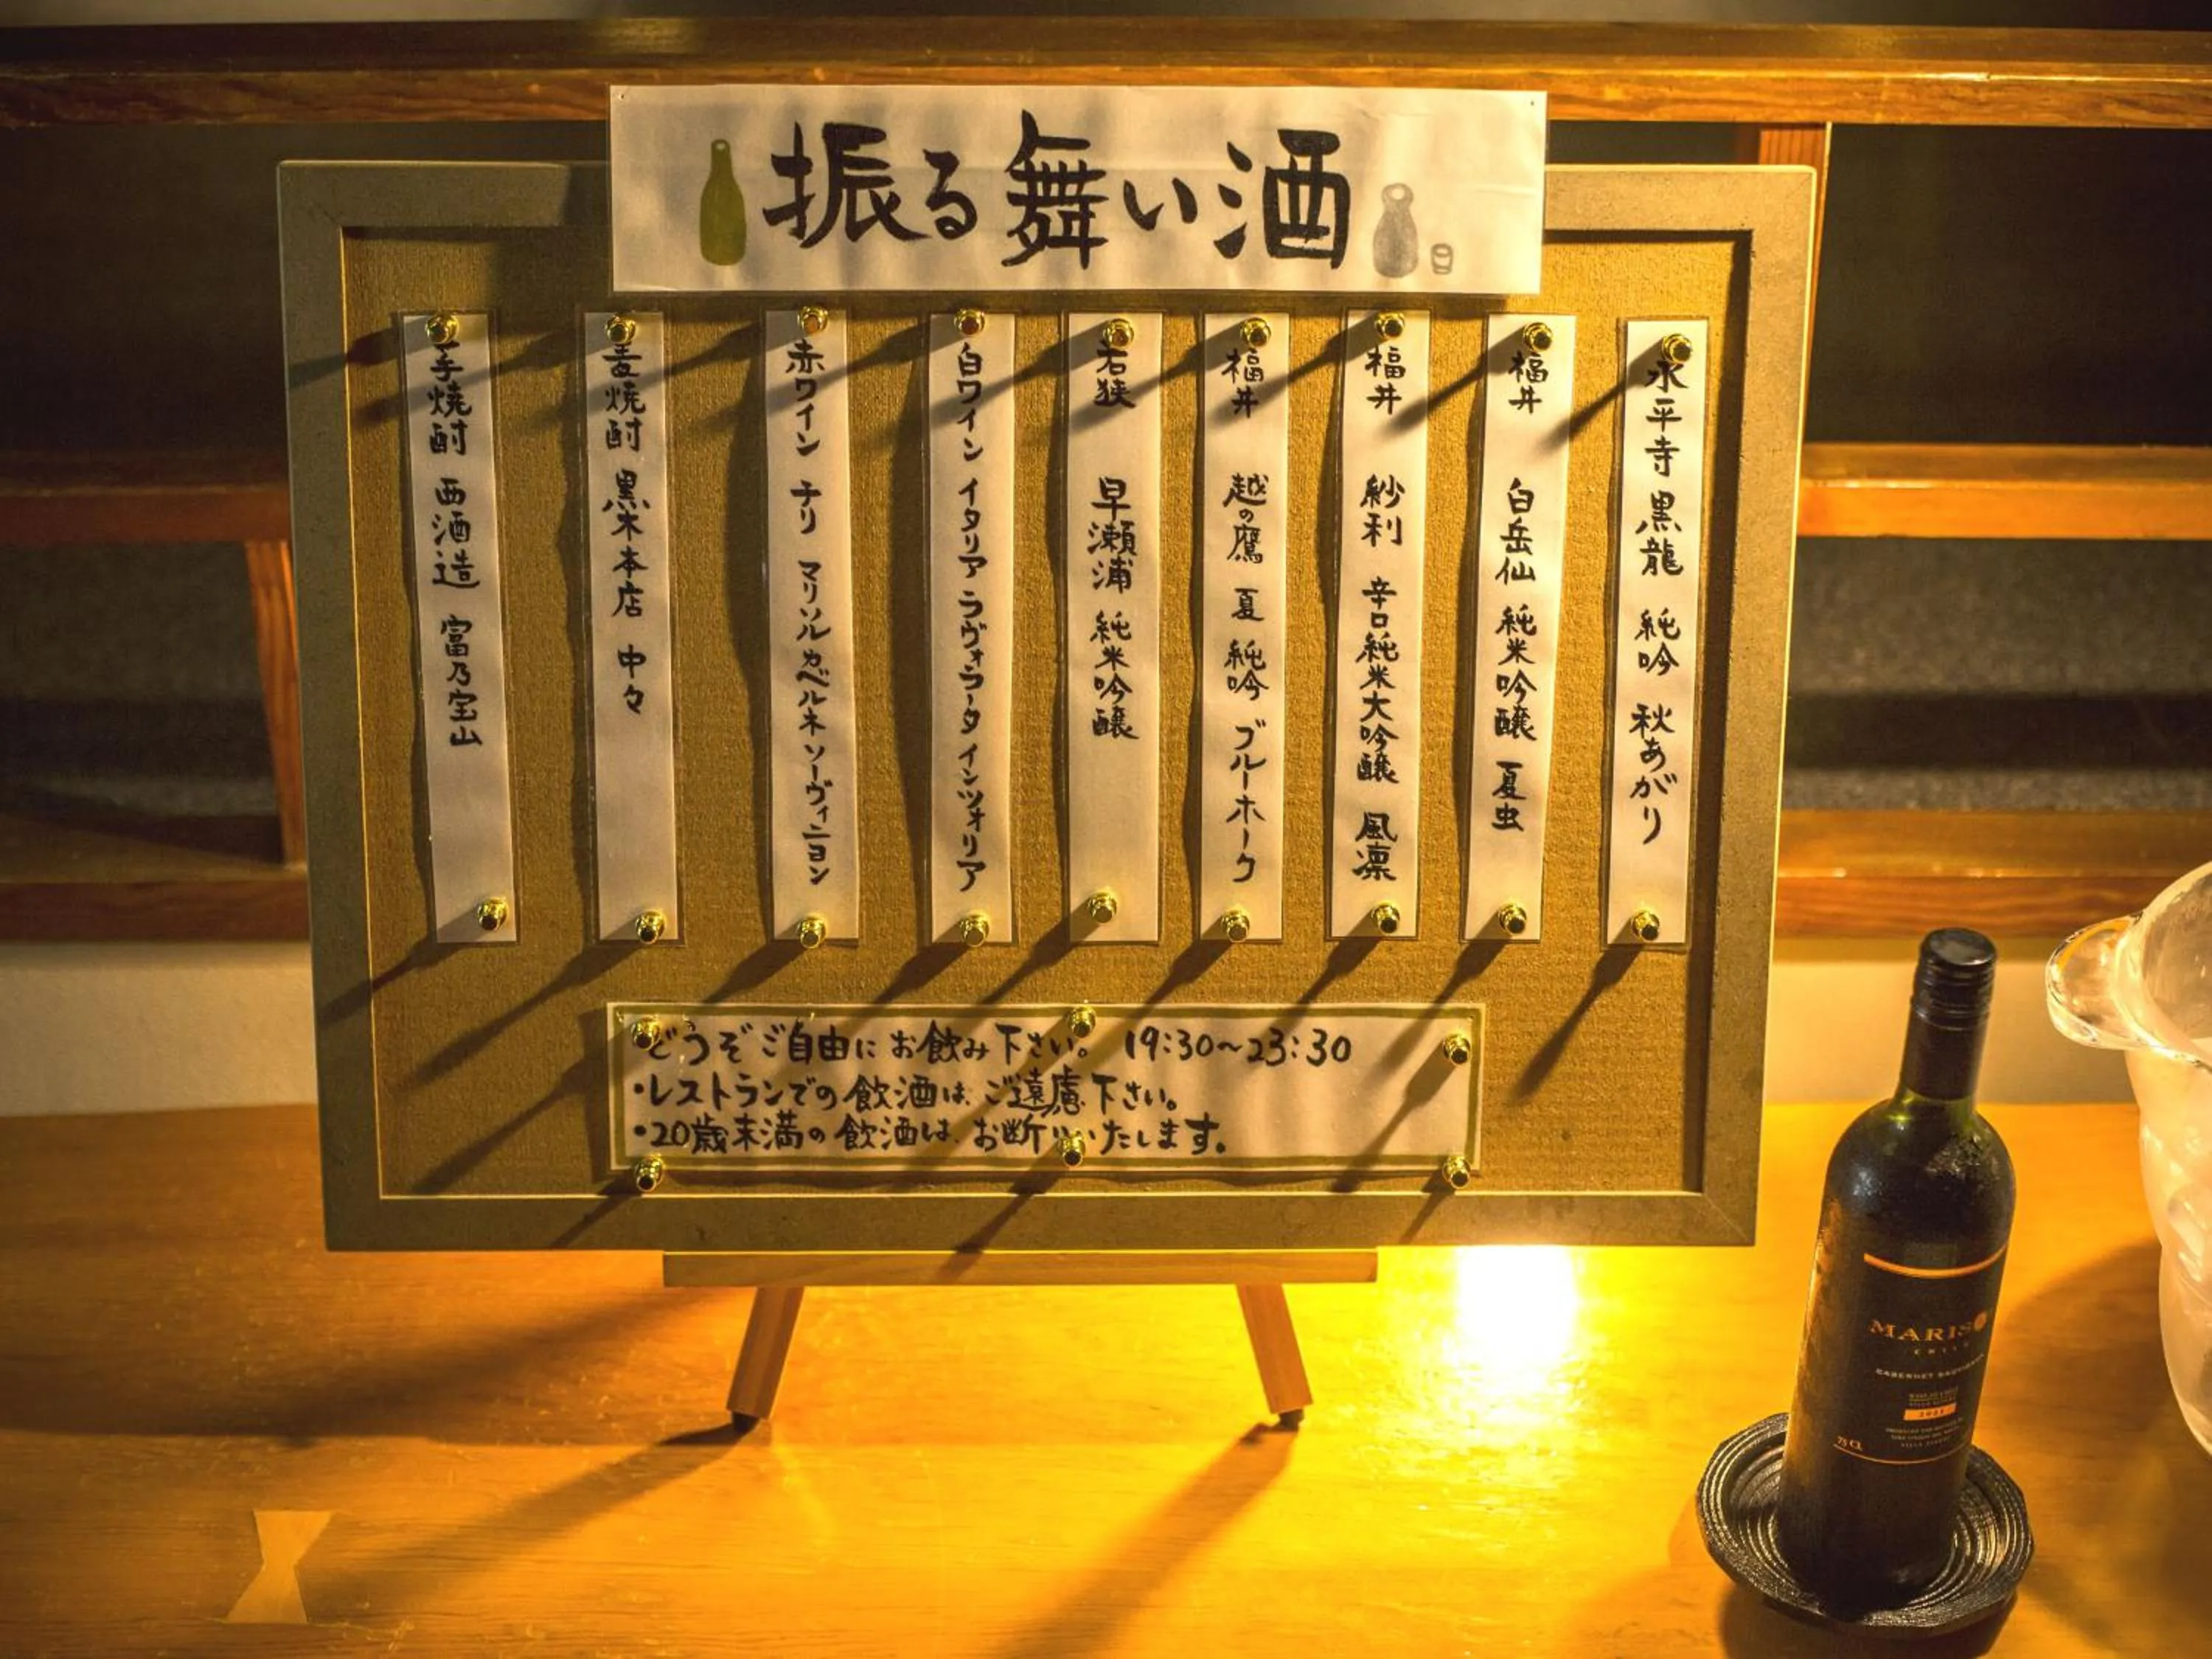 振る舞い酒
永平寺 黒龍 純吟 秋あがり
福井 白岳仙 純米吟醸 夏虫
福井 紗利 辛口純米大吟醸 風凛
福井 越の鷹 夏 純吟 ブルーホーク
若狭 早瀬浦 純米吟醸
白ワイン イタリア ラヴォラータ インツォリア
赤ワイン チリ マリソル カベルネ ソーヴィニヨン
麦焼酎 黒木本店 中々
芋焼酎 西酒造 富乃宝山
・どうぞご自由にお飲み下さい。 19:30～23:30
・レストランでの飲酒は、ご遠慮下さい。
・20歳未満の飲酒は、お断りいたします。
CABERNET
75CL